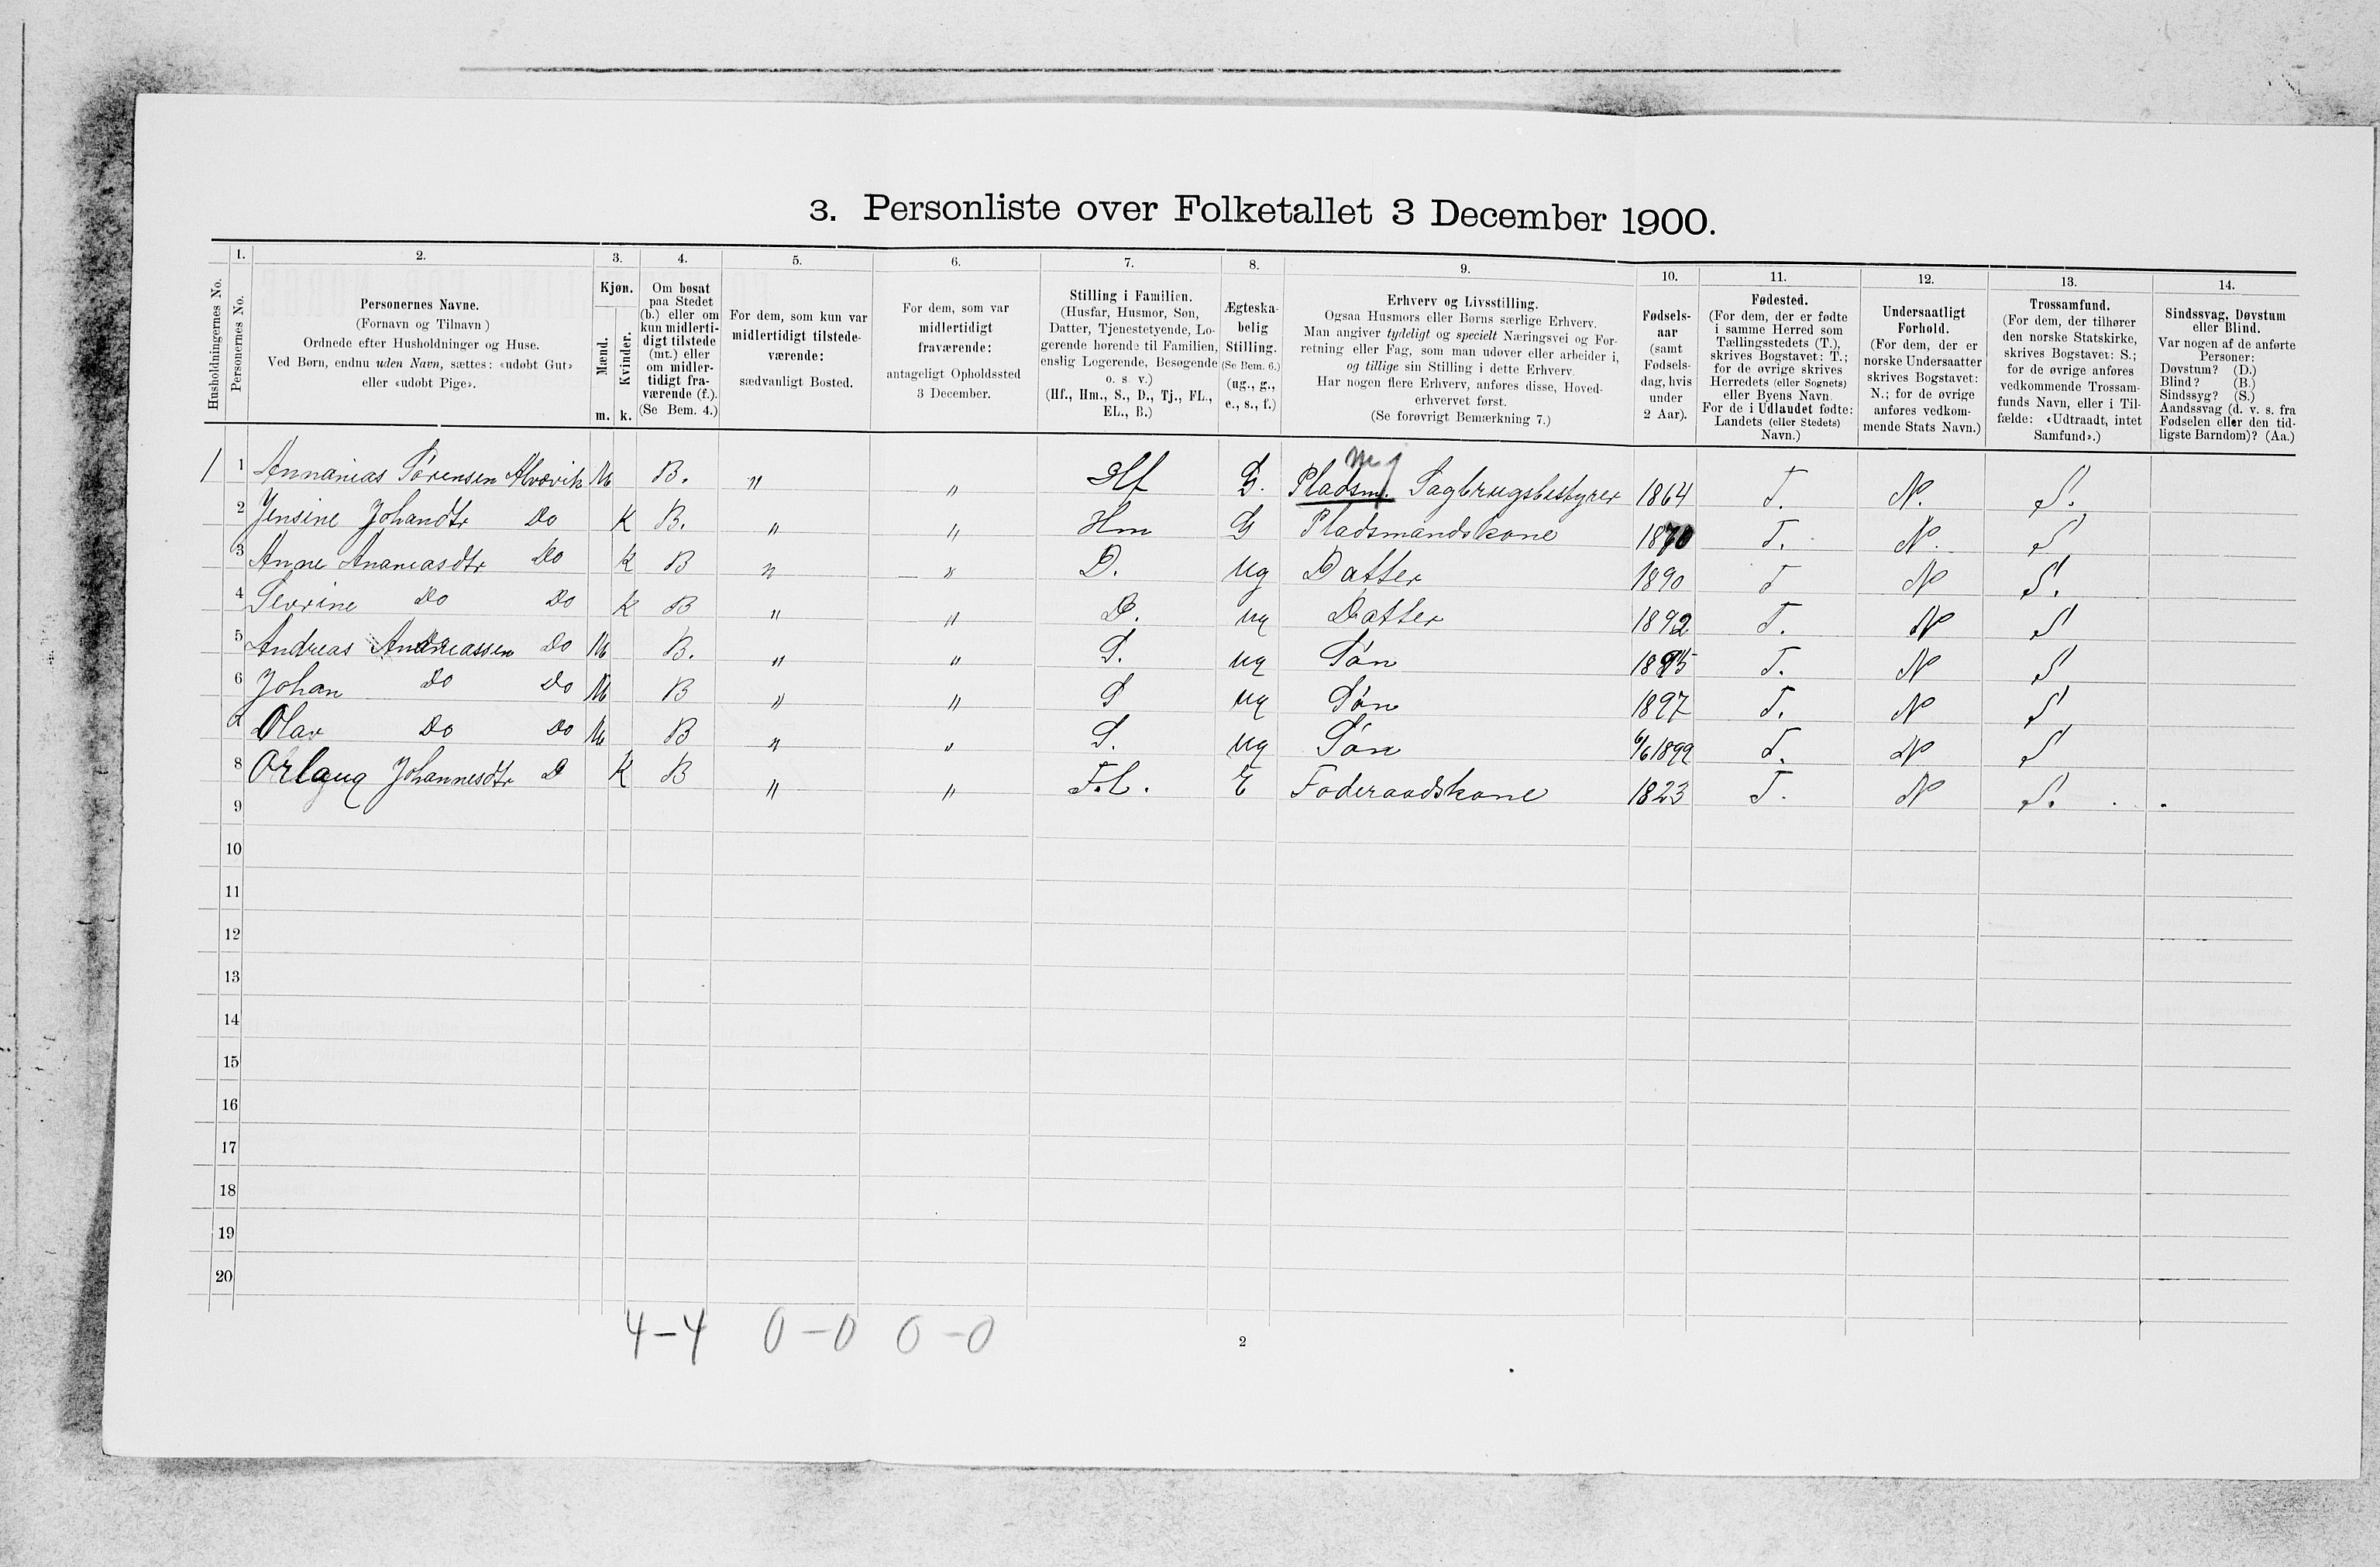 3. Personliste over Folketallet 3 December 1900.
1. 2. 3. 4. 5. 6. 7. 8. 9. 10. 11. 12. 13. 14.
Husholdningernes No.
Personernes No.
Personernes Navne.
(Fornavn og Tilnavn)
Ordnede efter Husholdninger og Huse.
Ved Børn, endnu uden Navn, sættes: «udøbt Gut»
eller «udøbt Pige».
Kjøn.
Mænd.
Kvinder.
m. k.
Om bosat
paa Stedet
(b.) eller om
kun midlerti-
digt tilstede
(mt.) eller
om midler-
tidigt fra-
værende (f.).
(Se Bem. 4.)
For dem, som kun var
midlertidigt tilstede-
værende:
sædvanligt Bosted.
For dem, som var
midlertidigt
fraværende:
antageligt Opholdssted
3 December.
Stilling i Familien.
(Husfar, Husmor, Søn,
Datter, Tjenestetyende, Lo-
gerende hørende til Familien,
enslig Logerende, Besøgende
o. s. v.)
(Hf., Hm., S., D., Tj., FL.,
EL., B.)
Ægteska-
belig
Stilling.
(Se Bem. 6.)
(ug., g.,
e., s., f.)
Erhverv og Livsstilling.
Ogsaa Husmors eller Børns særlige Erhverv.
Man angiver tydeligt og specielt Næringsvei og For-
retning eller Fag, som man udøver eller arbeider i,
og tillige sin Stilling i dette Erhverv.
Har nogen flere Erhverv, anføres disse, Hoved-
erhvervet først.
(Se forøvrigt Bemærkning 7.)
Fødsels-
aar
(samt
Fødsels-
dag, hvis
under
2 Aar).
Fødested.
(For dem, der er fødte
i samme Herred som
Tællingsstedets (T.),
skrives Bogstavet: T.;
for de øvrige skrives
Herredets (eller Sognets)
eller Byens Navn.
For de i Udlandet fødte:
Landets (eller Stedets)
Navn.)
Undersaatligt
Forhold.
(For dem, der er
norske Undersaatter
skrives Bogstavet:
N.; for de øvrige
anføres vedkom-
mende Stats Navn.)
Trossamfund.
(For dem, der tilhører
den norske Statskirke,
skrives Bogstavet: S.;
for de øvrige anføres
vedkommende Trossam-
funds Navn, eller i Til-
fælde: «Udtraadt, intet
Samfund».)
Sindssvag, Døvstum
eller Blind.
Var nogen af de anførte
Personer:
Døvstum? (D.)
Blind? (B.)
Sindssyg? (S.)
Aandssvag (d. v. s. fra
Fødselen eller den tid-
ligste Barndom)? (Aa.)
1 1 Annanias Sørensen Alvavik M B. " " Hf G. Pladsm. Sagbrugsbestyrer 1864 T. N. S.
2 Jensine Johandtr Do K B. " " Hm G Pladsmandskone 1870 T. N. S
3 Anne Ananiasdtr Do K B " " D. ug Datter 1890 T N S.
4 Sevrine Do Do K B " " D. ug Datter 1892 T. N S
5 Andreas Do M B. " " S. ug Søn 1895 T. N S
6 Johan Do Do M B " " S ug Søn 1897 T. N S
7 Olav Do Do M B " " S. ug Søn 6/6 1899 T. N S
8 Johannesdtr D K B " " F.L. E Foderaadskone 1823 T. N S.
9
10
11
12
13
14
15
16
17
18
19
20
4-4 0-0 0-0
2